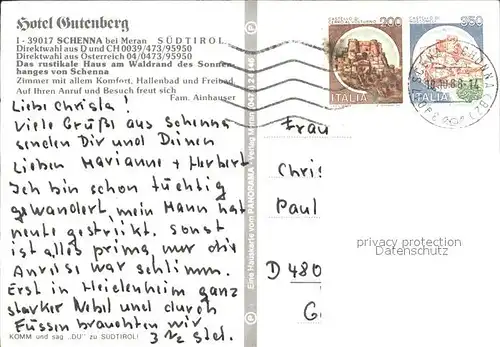 Hotel Gutenberg
I - 39017 SCHENNA bei Meran SÜDTIROL
Direktwahl aus D und CH 0039/473/95950
Direktwahl aus Österreich 04/0473/95950
Das rustikale Haus am Waldrand des Sonnen-
hanges von Schenna
Zimmer mit allem Komfort, Hallenbad und Freibad
Auf Ihren Anruf und Besuch freut sich
Fam. Ainhauser
Liebe Christa!
Viele Grüße aus Schenna
senden Dir und Deinen
Lieben Marianne + Herbert
Ich bin schon tüchtig
gewandert, mein Mann hat
heute gestreikt. Sonst
ist alles prima, nur die
Anreise war schlimm.
Erst in Heidenheim ganz
starker Nebel und durch
Füssen brauchten wir
3 ½ Std.
KOMM und sag „DU" zu SÜDTIROL!
Eine Hauskarte vom PANORAMA-Verlag Meran
200
ITALIA
950
ITALIA
Frau
Chris
Paul
D 480
G
privacy protection
Datenschutz